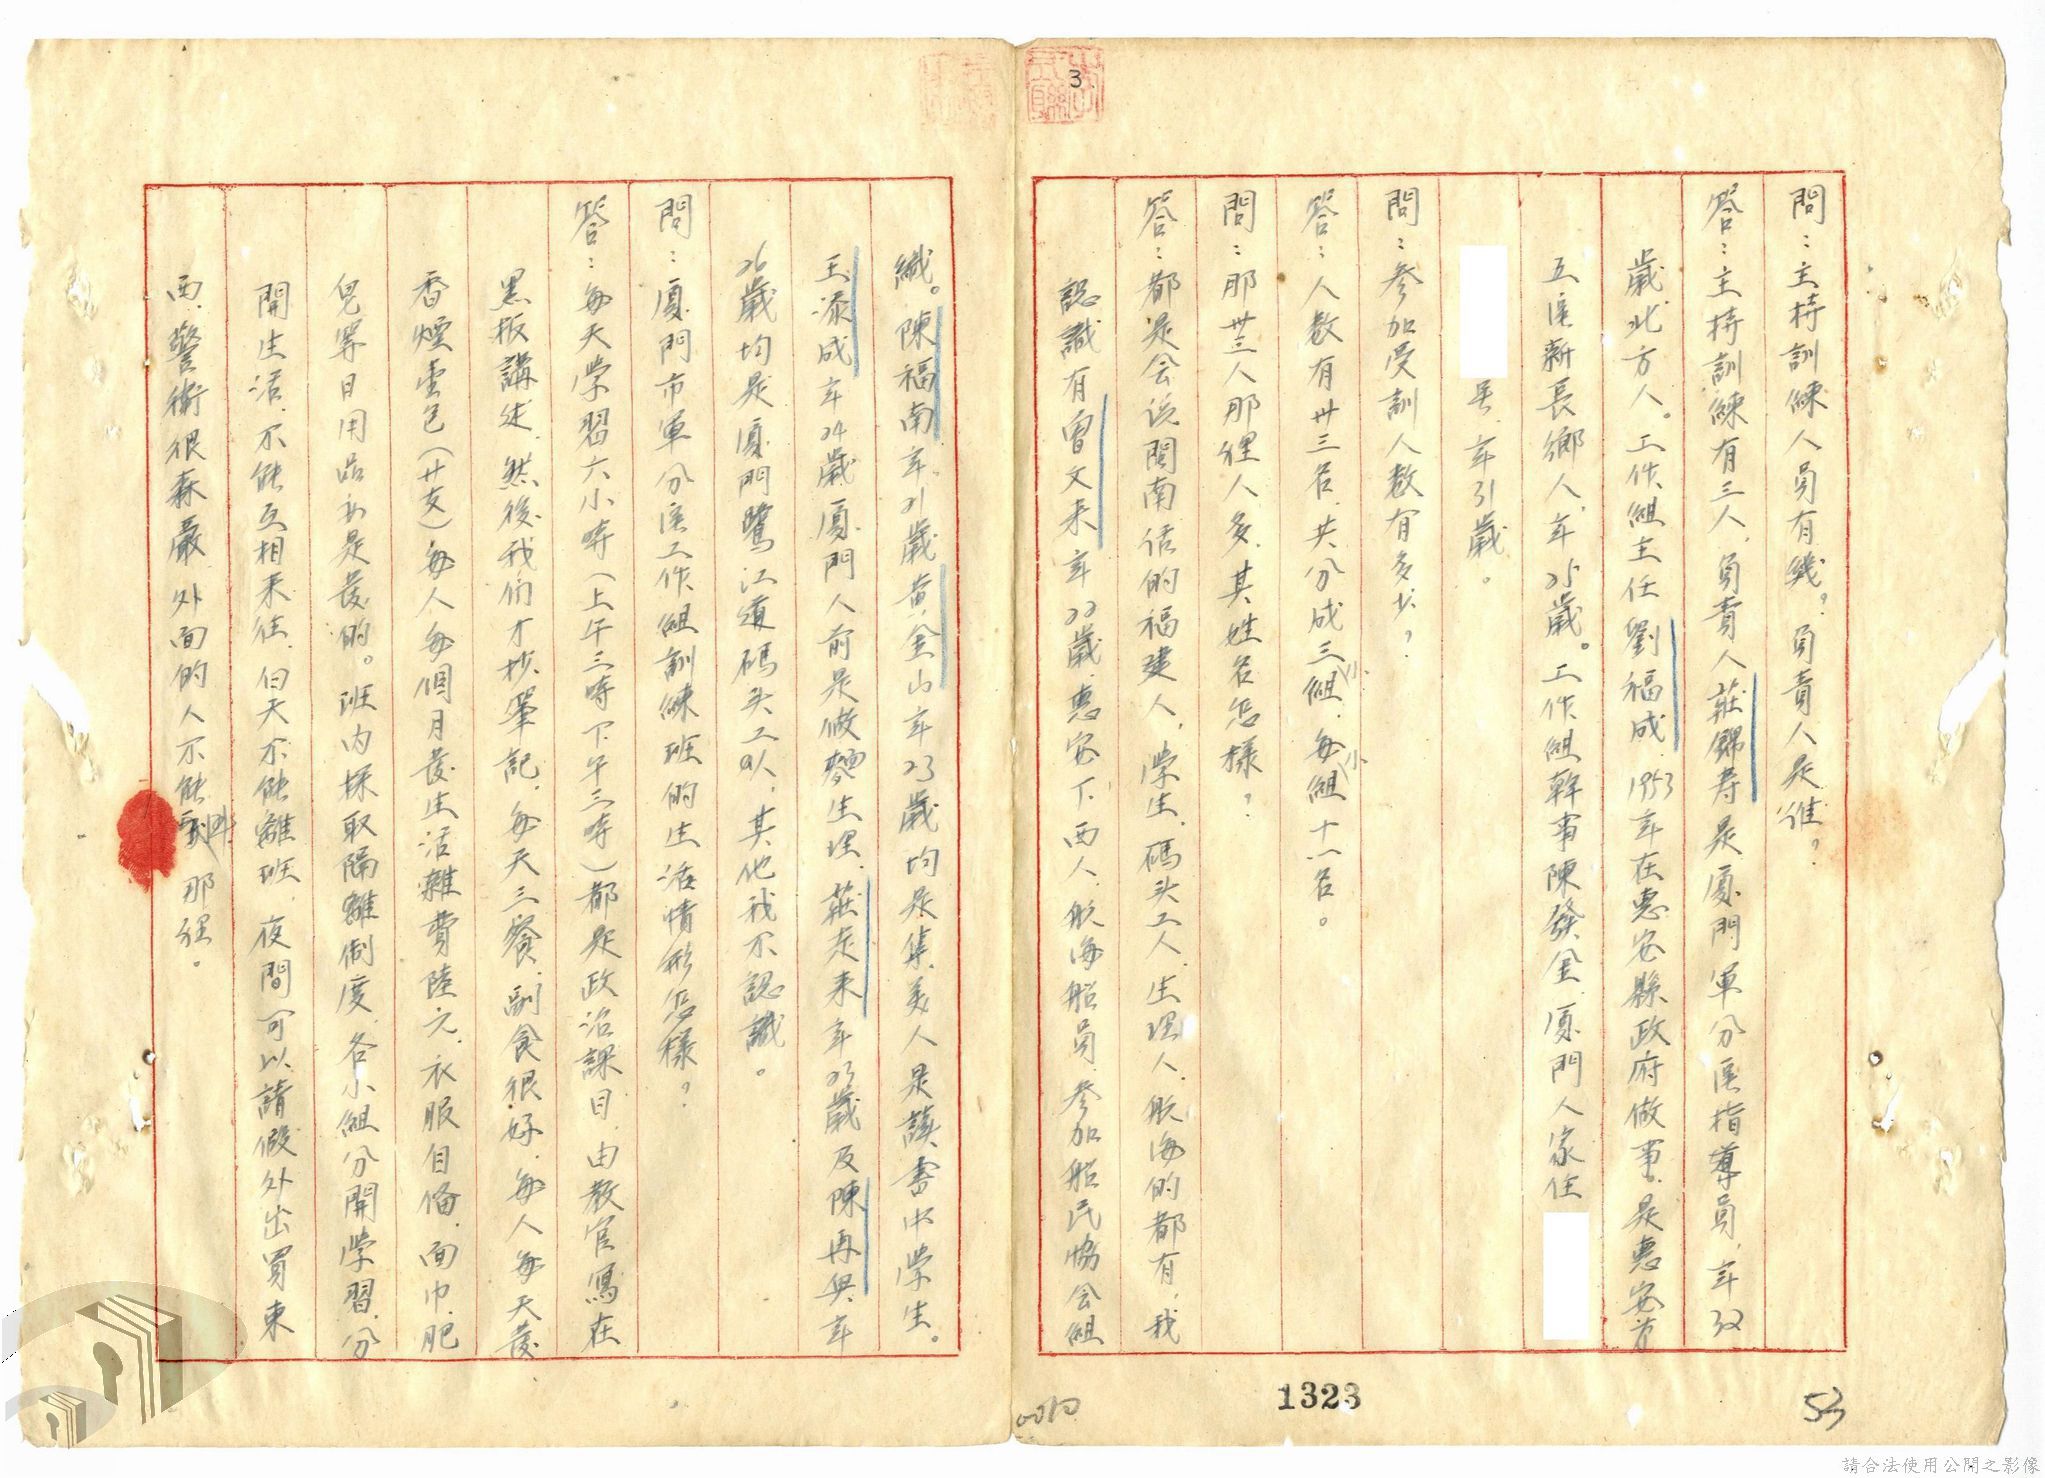 3
問：主持訓練人員有幾？負責人是誰？
答：主持訓練有三人，負責人莊錦寿是厦門軍分区指導員，年32
歲北方人。工作組主任劉福成，1953年在惠安縣政府做事，是惠安首
五区新長鄉人，年25歲。工作組幹事陳發金，厦門人家住
号，年31歲。
問：参加受訓人数有多少？
答：人数有卅三名，共分成三小組，每小組十一名。
問：那卅三人那裡人多，其姓名怎樣？
答：都是会说閩南话的福建人，学生，碼头工人，生理人，航海的都有，我
認識有曾文来年22歲，惠安下西人，航海船員，参加船民協会組
織。陳福南年21歲，黄金山年23歲均是集美人是讀書中学生。
王添成年24歲厦門人前是做麵生理，莊走来年23歲及陳再興年
26歲均是厦門鷺江道碼头工队，其他我不認識。
問：厦門市軍分区工作組訓練班的生活情形怎樣？
答：每天学習六小時（上午三時下午三時）都是政治課目，由教官寫在
黑板講述，然後我们才抄筆記，每天三餐，副食很好，每人每天發
香煙壹包（廿支）每人每個月發生活雜費陸元，衣服自俻，面巾，肥
皂等日用品都是發的。班内採取隔離制度，各小組分開学習，分
開生活，不能互相来往，白天不能離班，夜間可以請假外出買東
西，警衛很森嚴，外面的人不能到那裡。
1323
53
0010
請合法使用公開之影像